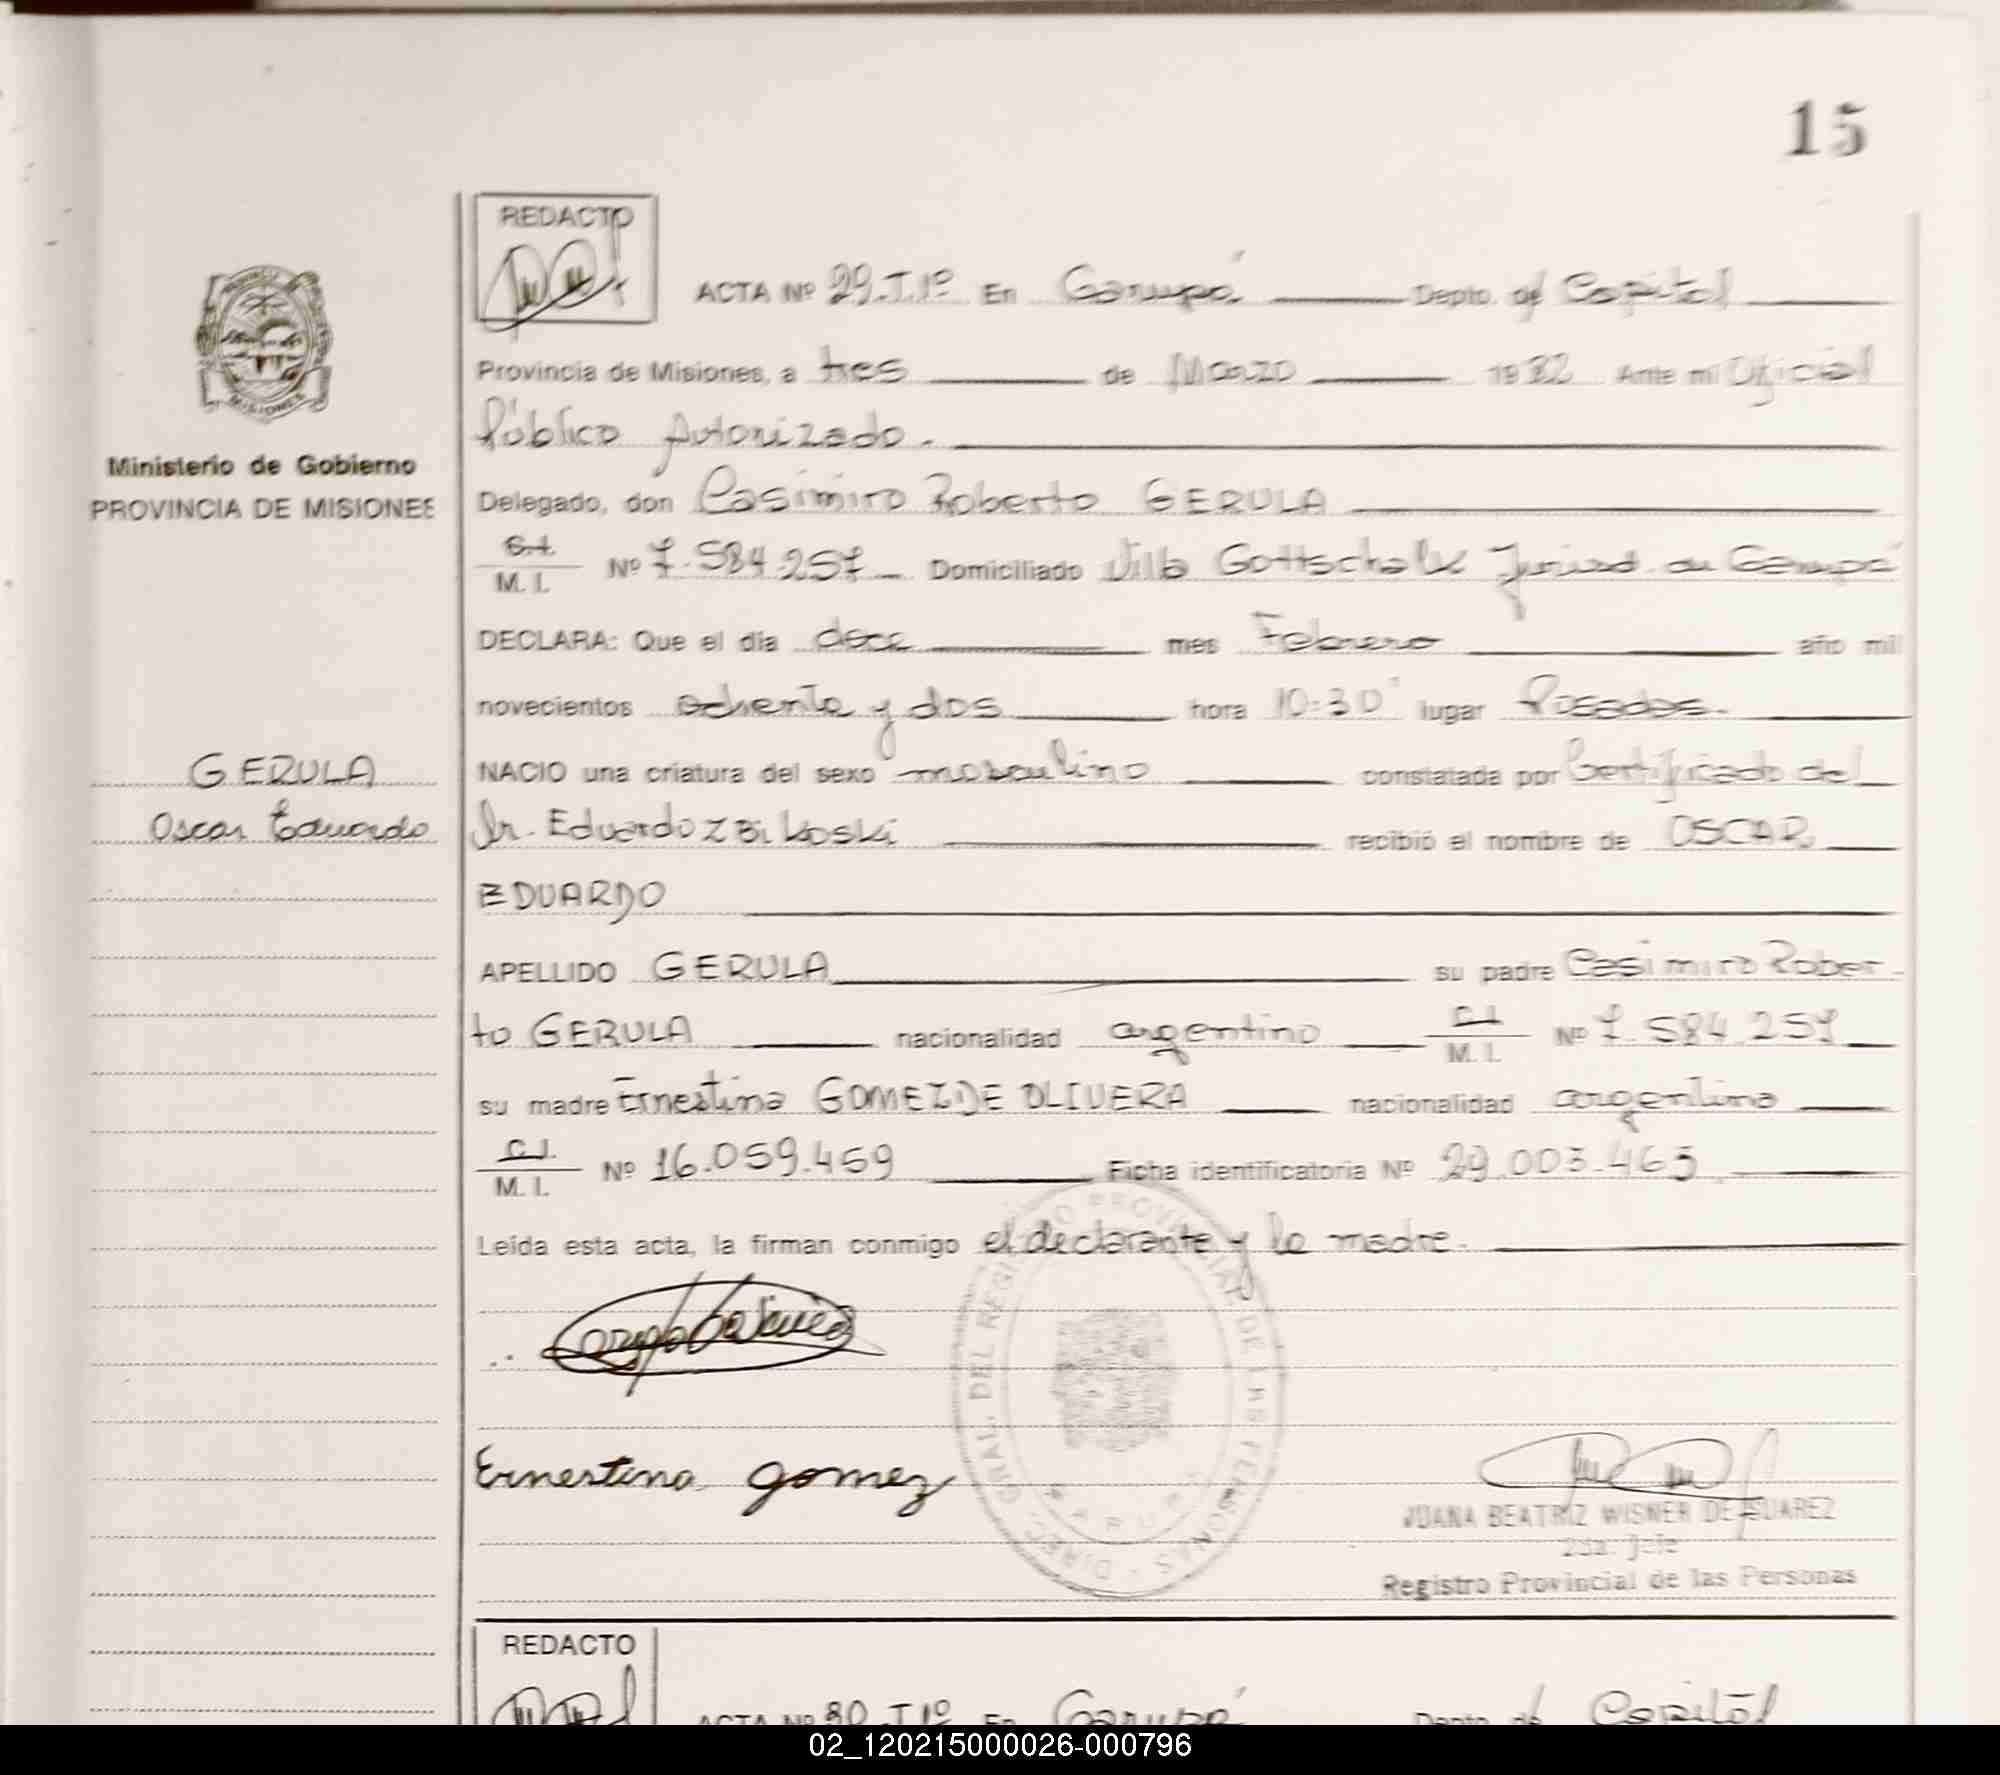 15
REDACTO
ACTA Nº 29.T.1º En Garupá Depto. de Capital
Provincia de Misiones, a tres de Marzo 1982 Ante mi Oficial
Público Autorizado.
Ministerio de Gobierno
PROVINCIA DE MISIONES
Delegado, don Casimiro Roberto GERULA
C.I. M. I. Nº 7.584.257 Domiciliado Villa Gottschalk en Garupá
DECLARA: Que el dia doce mes Febrero año mil
novecientos ochenta y dos hora 10:30 lugar Posadas.
GERULA
Oscar Eduardo
NACIO una criatura del sexo masculino constatada por Certificado del
Dr. Eduardo recibió el nombre de OSCAR
EDUARDO
APELLIDO GERULA su padre Casimiro Rober
to GERULA nacionalidad argentino C.I. M. I. Nº 7.584.257
su madre Ernestina GOMEZ DE OLIVERA nacionalidad argentina
C.I. M. I. Nº 16.059.459 Ficha identificatoria Nº 29.003.463
Leída esta acta, la firman conmigo el declarante y la madre.
DIREC. GRAL. DEL REGISTRO PROVINCIAL DE LAS PERSONAS
GARUPA
Ernestina gomez
JUANA BEATRIZ WISNER DE SUAREZ
2da. Jefe
Registro Provincial de las Personas
REDACTO
ACTA Nº 30 T 1º En Garupá Depto. de Capital
02_120215000026-000796